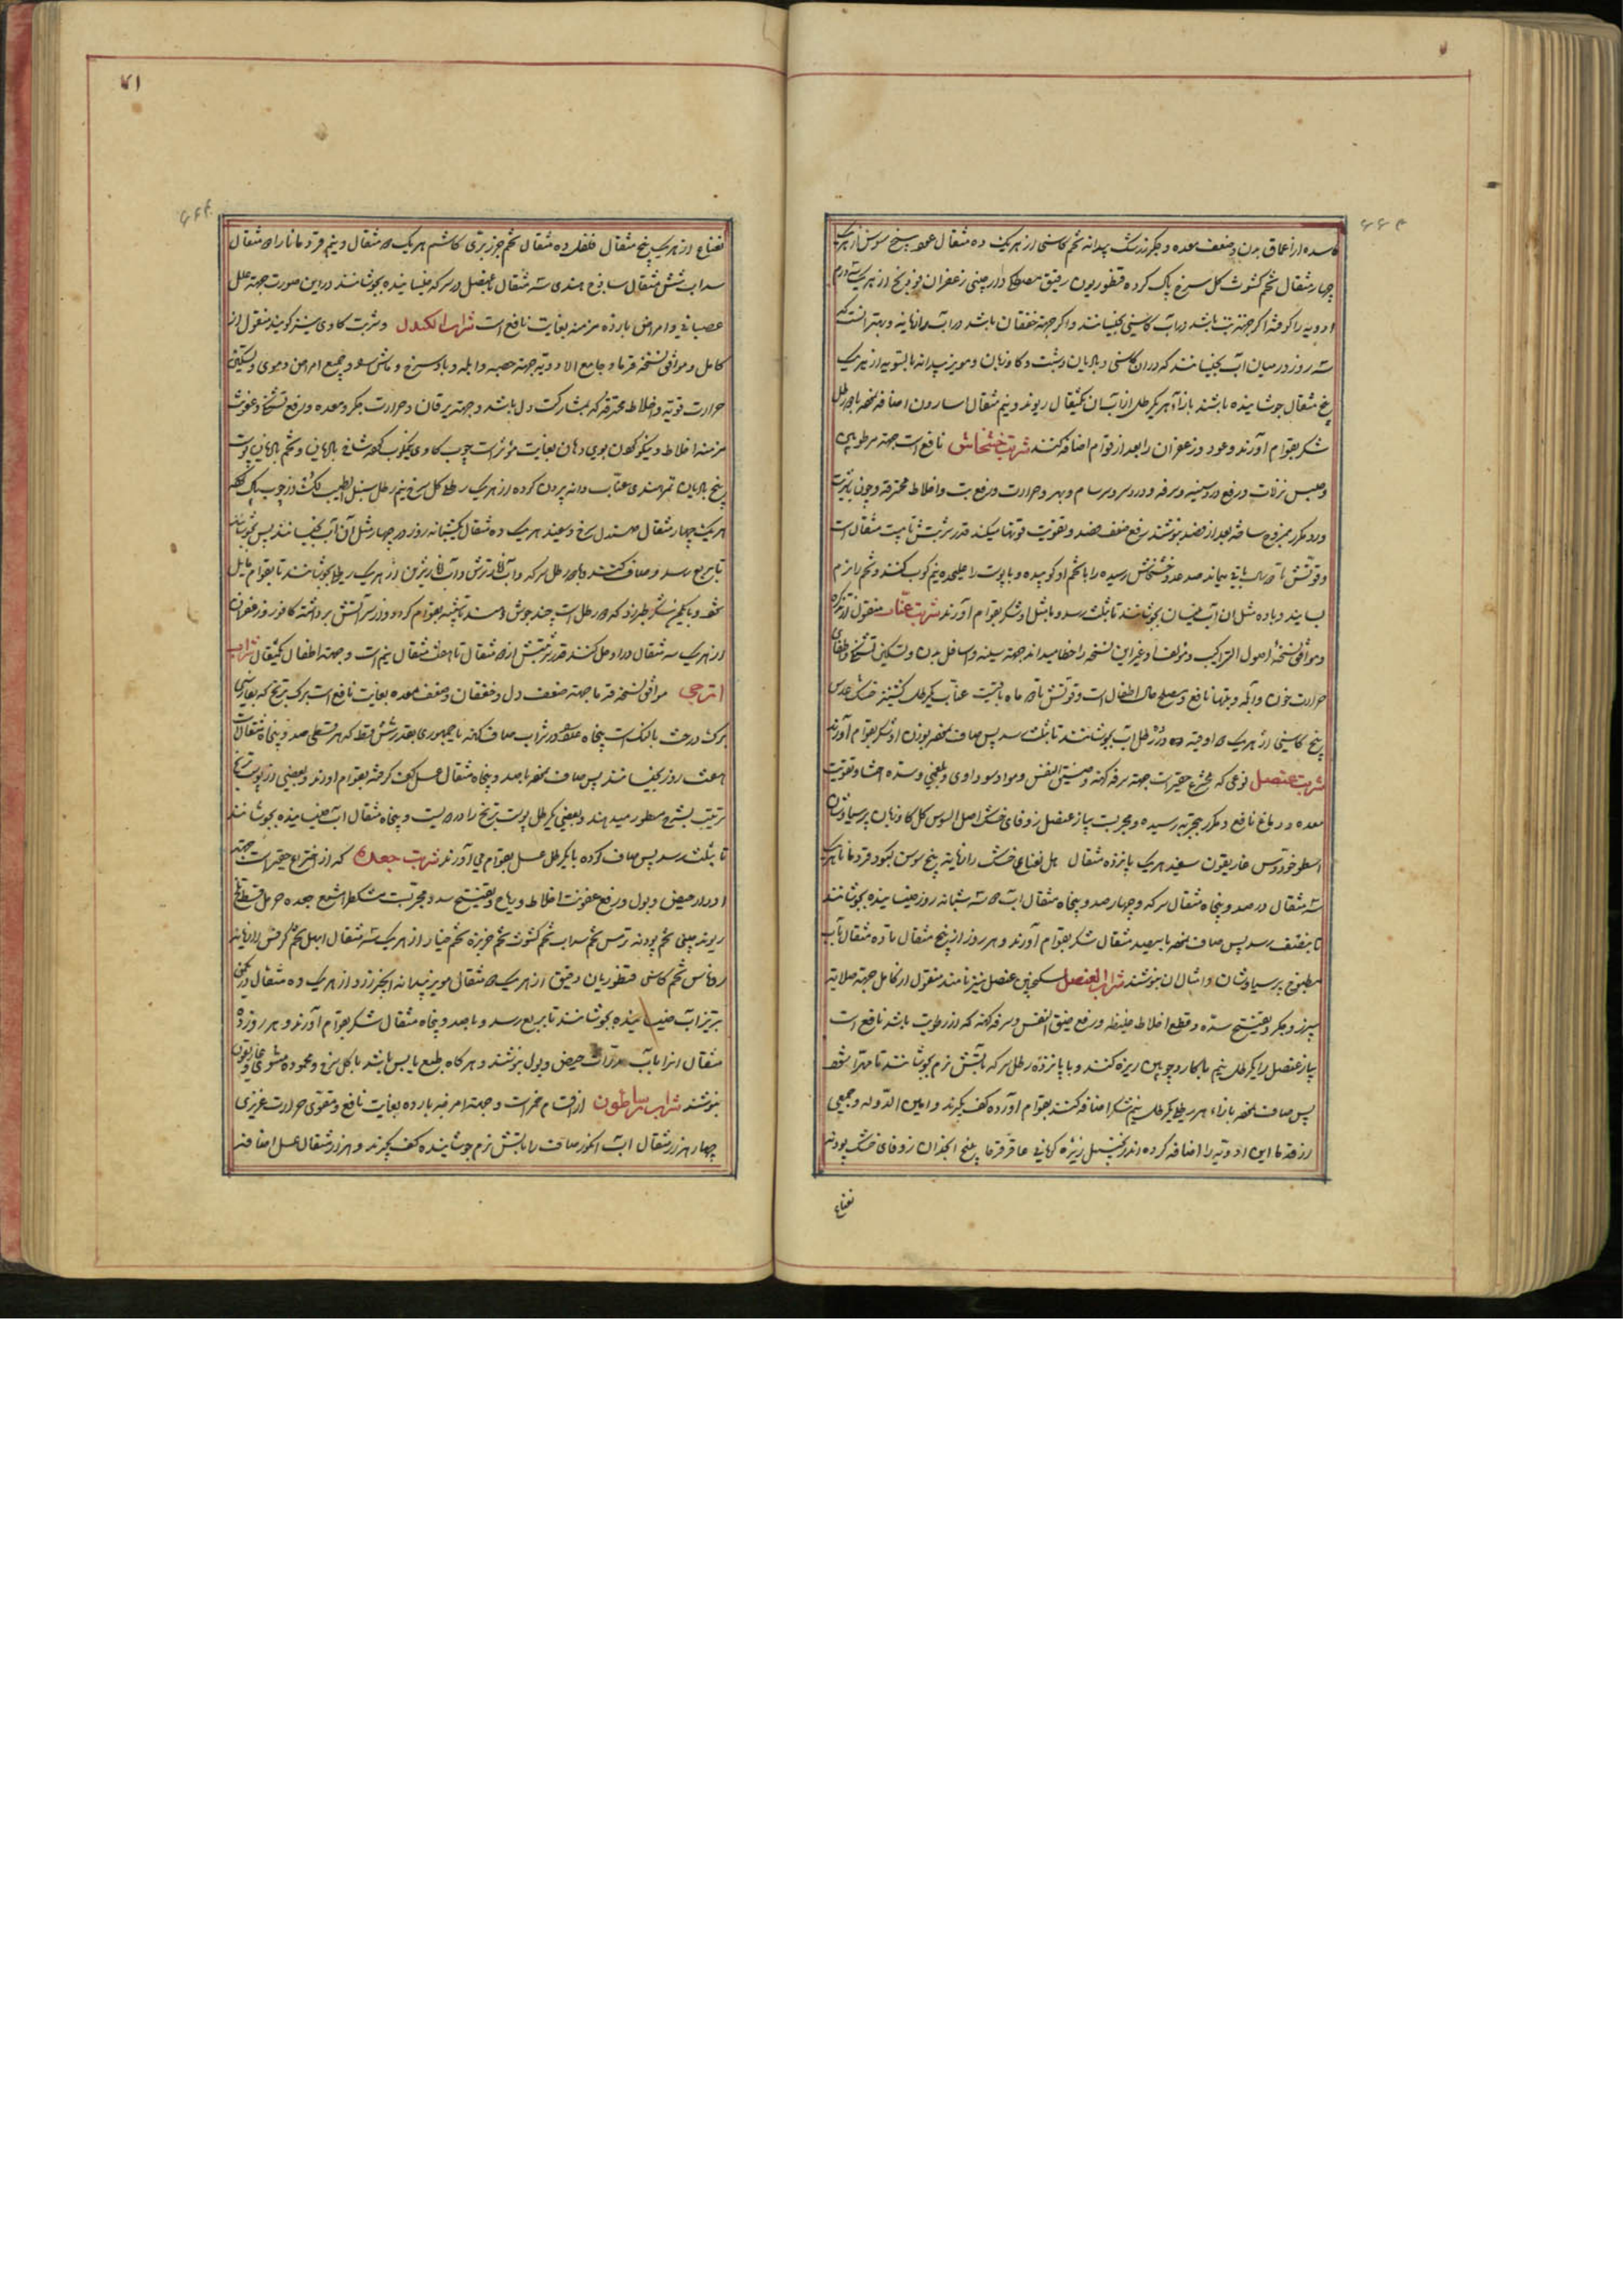 ۶۶۳
فاسده از اعماق بدن و ضعف معده و جگر زرشک بیدانه تخم کاسنی از هر یک ده مثقال عصیر بیخ سوس از هر یک
چهار مثقال تخم کشوث گل سرخ پاک کرده قنطوریون رقیق مصطکی دارچینی زعفران فرنج از هر یک سه درم
ادویه را کوفته اگر جهة تب باشد در آب کاسنی بخیسانند و اگر جهة خفقان باشد در آب رازیانه و بهتر آنست که
سه روز در میان آب بخیسانند که در آن کاسنی و بادیان و شبت و گاوزبان و مویز بیدانه بالسویه از هر یک
پنج مثقال جوشانیده باشند بازاء هر یکرطل از آب آن یکمثقال ریوند و نیم مثقال اسارون اضافه نموده با چهار رطل
شکر بقوام آورند و عود و زعفران را بعد از قوام اضافه کنند شربت خشخاش نافع است جهة مرطوبین
و حبس نزلات و رفع درد سینه و سرفه و درد سر و سرسام و سهر و حرارت و رفع تب و اخلاط محترقه و چون با تربت
ورد مکرر ممزوج ساخته بعد از فصد بنوشند رفع ضعف فصد و تقویت قوتها میکند قدر شربتش تا بیست مثقال است
و قوتش تا دو سال باقی میماند صد عدد خشخاش رسیده را با تخم او کوبیده و یا پوست را علیحده نیم کوب کنند و تخم را نرم
بسایند و با ده مثل آن آب نیسان بجوشانند تا بثلث رسد و با مثل او شکر بقوام آورند شربت عنّاب منقول از تذکره
و موافق نسخهٔ اصول التراکیب و مؤلف او غیر این نسخه را خطا میداند جهة سینه و اسافل بدن و تسکین تشنگی و اطفای
حرارت خون و آبله و تبها نافع و مصلح حال اطفال است و قوتش تا دو ماه باقیست عناب یکرطل کشنیز خشک عدس
بیخ کاسنی از هر یک دو اوقیه در ده رطل آب بجوشانند تا بثلث رسد پس صاف نموده بوزن او شکر بقوام آورند
شربت عنصل نوعی که مخترع حقیر است جهة سرفه کهنه و ضیق النفس و مواد سوداوی و بلغمی و سده احشا و تقویت
معده و دماغ نافع و مکرر بتجربه رسیده و مجربست پیاز عنصل زوفای خشک اصل السوس گل گاوزبان پرسیاوشان
اسطوخودوس غاریقون سفید هر یک پانزده مثقال هل نعناع خشک رازیانه بیخ سوسن کبود قردمانا هر یک
سه مثقال در صد و پنجاه مثقال سرکه و چهارصد و پنجاه مثقال آب سه شبانه روز خیسانیده بجوشانند
تا بنصف رسد پس صاف نموده با سیصد مثقال شکر بقوام آورند و هر روز از پنج مثقال تا ده مثقال با آب
مطبوخ پرسیاوشان و امثال آن بنوشند شراب العنصل سکنجبین عنصل نیز نامند منقول از کامل جهة صلابة
سپرز و جگر و تفتیح سدّه و قطع اخلاط غلیظه و رفع ضیق النفس و سرفه کهنه که از رطوبت باشد نافع است
پیاز عنصل را یکرطل و نیم با کارد چوبین ریزه کنند و با پانزده رطل سرکه بآتش نرم بجوشانند تا مهرّا شود
پس صاف نموده بازاء هر رطلی یکرطل و نیم شکر اضافه کنند بقوام آورده کف بگیرند و امین الدّوله و جمعی
از قدما این ادویه را اضافه کرده اند زنجبیل زیره کرمانی عاقرقرحا بیخ انجدان زوفای خشک پودنه
نعناع
۷۱
۶۶۴
نعناع از هر یک پنج مثقال فلفل ده مثقال تخم جزر برّی کاشم هر یک دو مثقال و نیم قردمانا را دو مثقال
سداب شش مثقال ساذج هندی سه مثقال با عنصل در سرکه خیسانیده بجوشانند در این صورت جهة علل
عصبانی و امراض بارده مزمنه بغایت نافع است شراب الکدول و شربت کاوی نیز گویند منقول از
کامل و موافق نسخه قدما و جامع الادویه جهة حصبه و آبله و باد سرخ و ماشرا و جمیع امراض دموی و تسکین
حرارت قویه و اخلاط محترقه که بمشارکت دل باشد و جهة یرقان و حرارت جگر و معده و رفع تشنگی و عفونت
مزمنه اخلاط و نیکو کردن بوی دهان بغایت مؤثر است چوب کاوی نیکوب کهنه شامی بادیان و تخم بادیان پوست
بیخ بادیان تمر هندی عناب دانه بیرون کرده از هر یک رطلی گل سرخ نیم رطل سنبل الطیب لک از چوب پاک کرده
هر یک چهار مثقال صندل سرخ و سفید هر یک ده مثقال یکشبانه روز در چهار مثل آن آب بخیسانند پس بجوشانند
تا بربع رسد و صاف کنند و با دو رطل سرکه و آب انار ترش و آب انار شیرین از هر یک رطلی بجوشانند تا بقوام مایل
شود و با یکمن شکر طبرزد که دو رطل است چند جوش دهند تا بنیمه بقوام گردد و از سر آتش برداشته کافور و زعفران
از هر یک سه مثقال در او حل کنند قدر شربتش از دو مثقال تا هفت مثقال و نیم است و جهة اطفال یکمثقال شراب
اترجی موافق نسخه قدما جهة ضعف دل و خفقان و ضعف معده بغایت نافع است برگ ترنج که بفارسی
برگ درخت بالنگ است پنجاه عدد در شراب صاف کهنه یا جمهوری بقدر شش قسط که هر قسطی صد و پنجاه مثقال است
هفت روز بخیسانند پس صاف نموده با صد و پنجاه مثقال عسل کف گرفته بقوام آورند و بعضی از پوست ترنج
ترتیب بشرح مسطور میدهند و بعضی یکرطل پوست ترنج را در دویست و پنجاه مثقال آب خیسانیده بجوشانند
تا بثلث رسد پس صاف کرده با یکرطل عسل بقوام می آورند شربت جعده که از اختراع حقیر است جهة
ادرار حیض و بول و رفع عفونت اخلاط و ریاح و تفتیح سدد مجربست مشکطرامشیع جعده حرمل قسط تلخ
ریوند چینی تخم پودنه ترمس تخم سداب تخم کشوث تخم خربزه تخم خیار از هر یک سه مثقال ابهل تخم کرفس رازیانه
روناس تخم کاسنی قنطوریان دقیق از هر یک دو مثقال مویز بیدانه انجیر زرد از هر یک ده مثقال در یکمن
تبریز آب خیسانیده بجوشانند تا بربع رسد و با صد و پنجاه مثقال شکر بقوام آورند و هر روز ده
مثقال آنرا با آب مدرّات حیض و بول بنوشند و هرگاه طبع یابس باشد با گل سرخ و محموده مشوی و غاریقون
بنوشند شراب ساطون از اقسام خمر است و جهة امراض بارده بغایت نافع و مقوی حرارت غریزی
چهار هزار مثقال آب انگور صاف را بآتش نرم جوشانیده کف بگیرند و هزار مثقال عسل اضافه